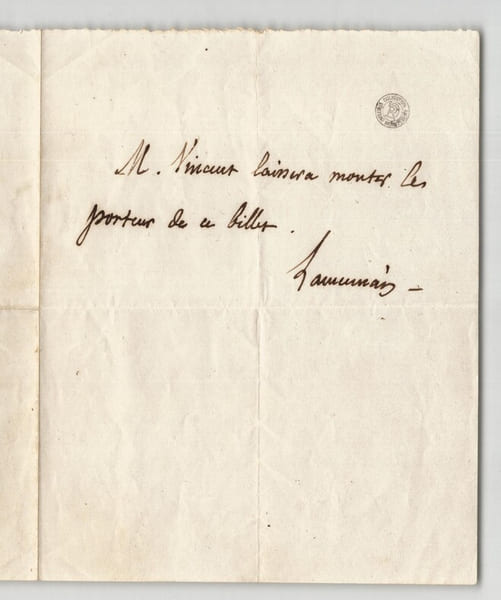 M. Vincent laissera monter les
porteur de ce billet.
Lamennais